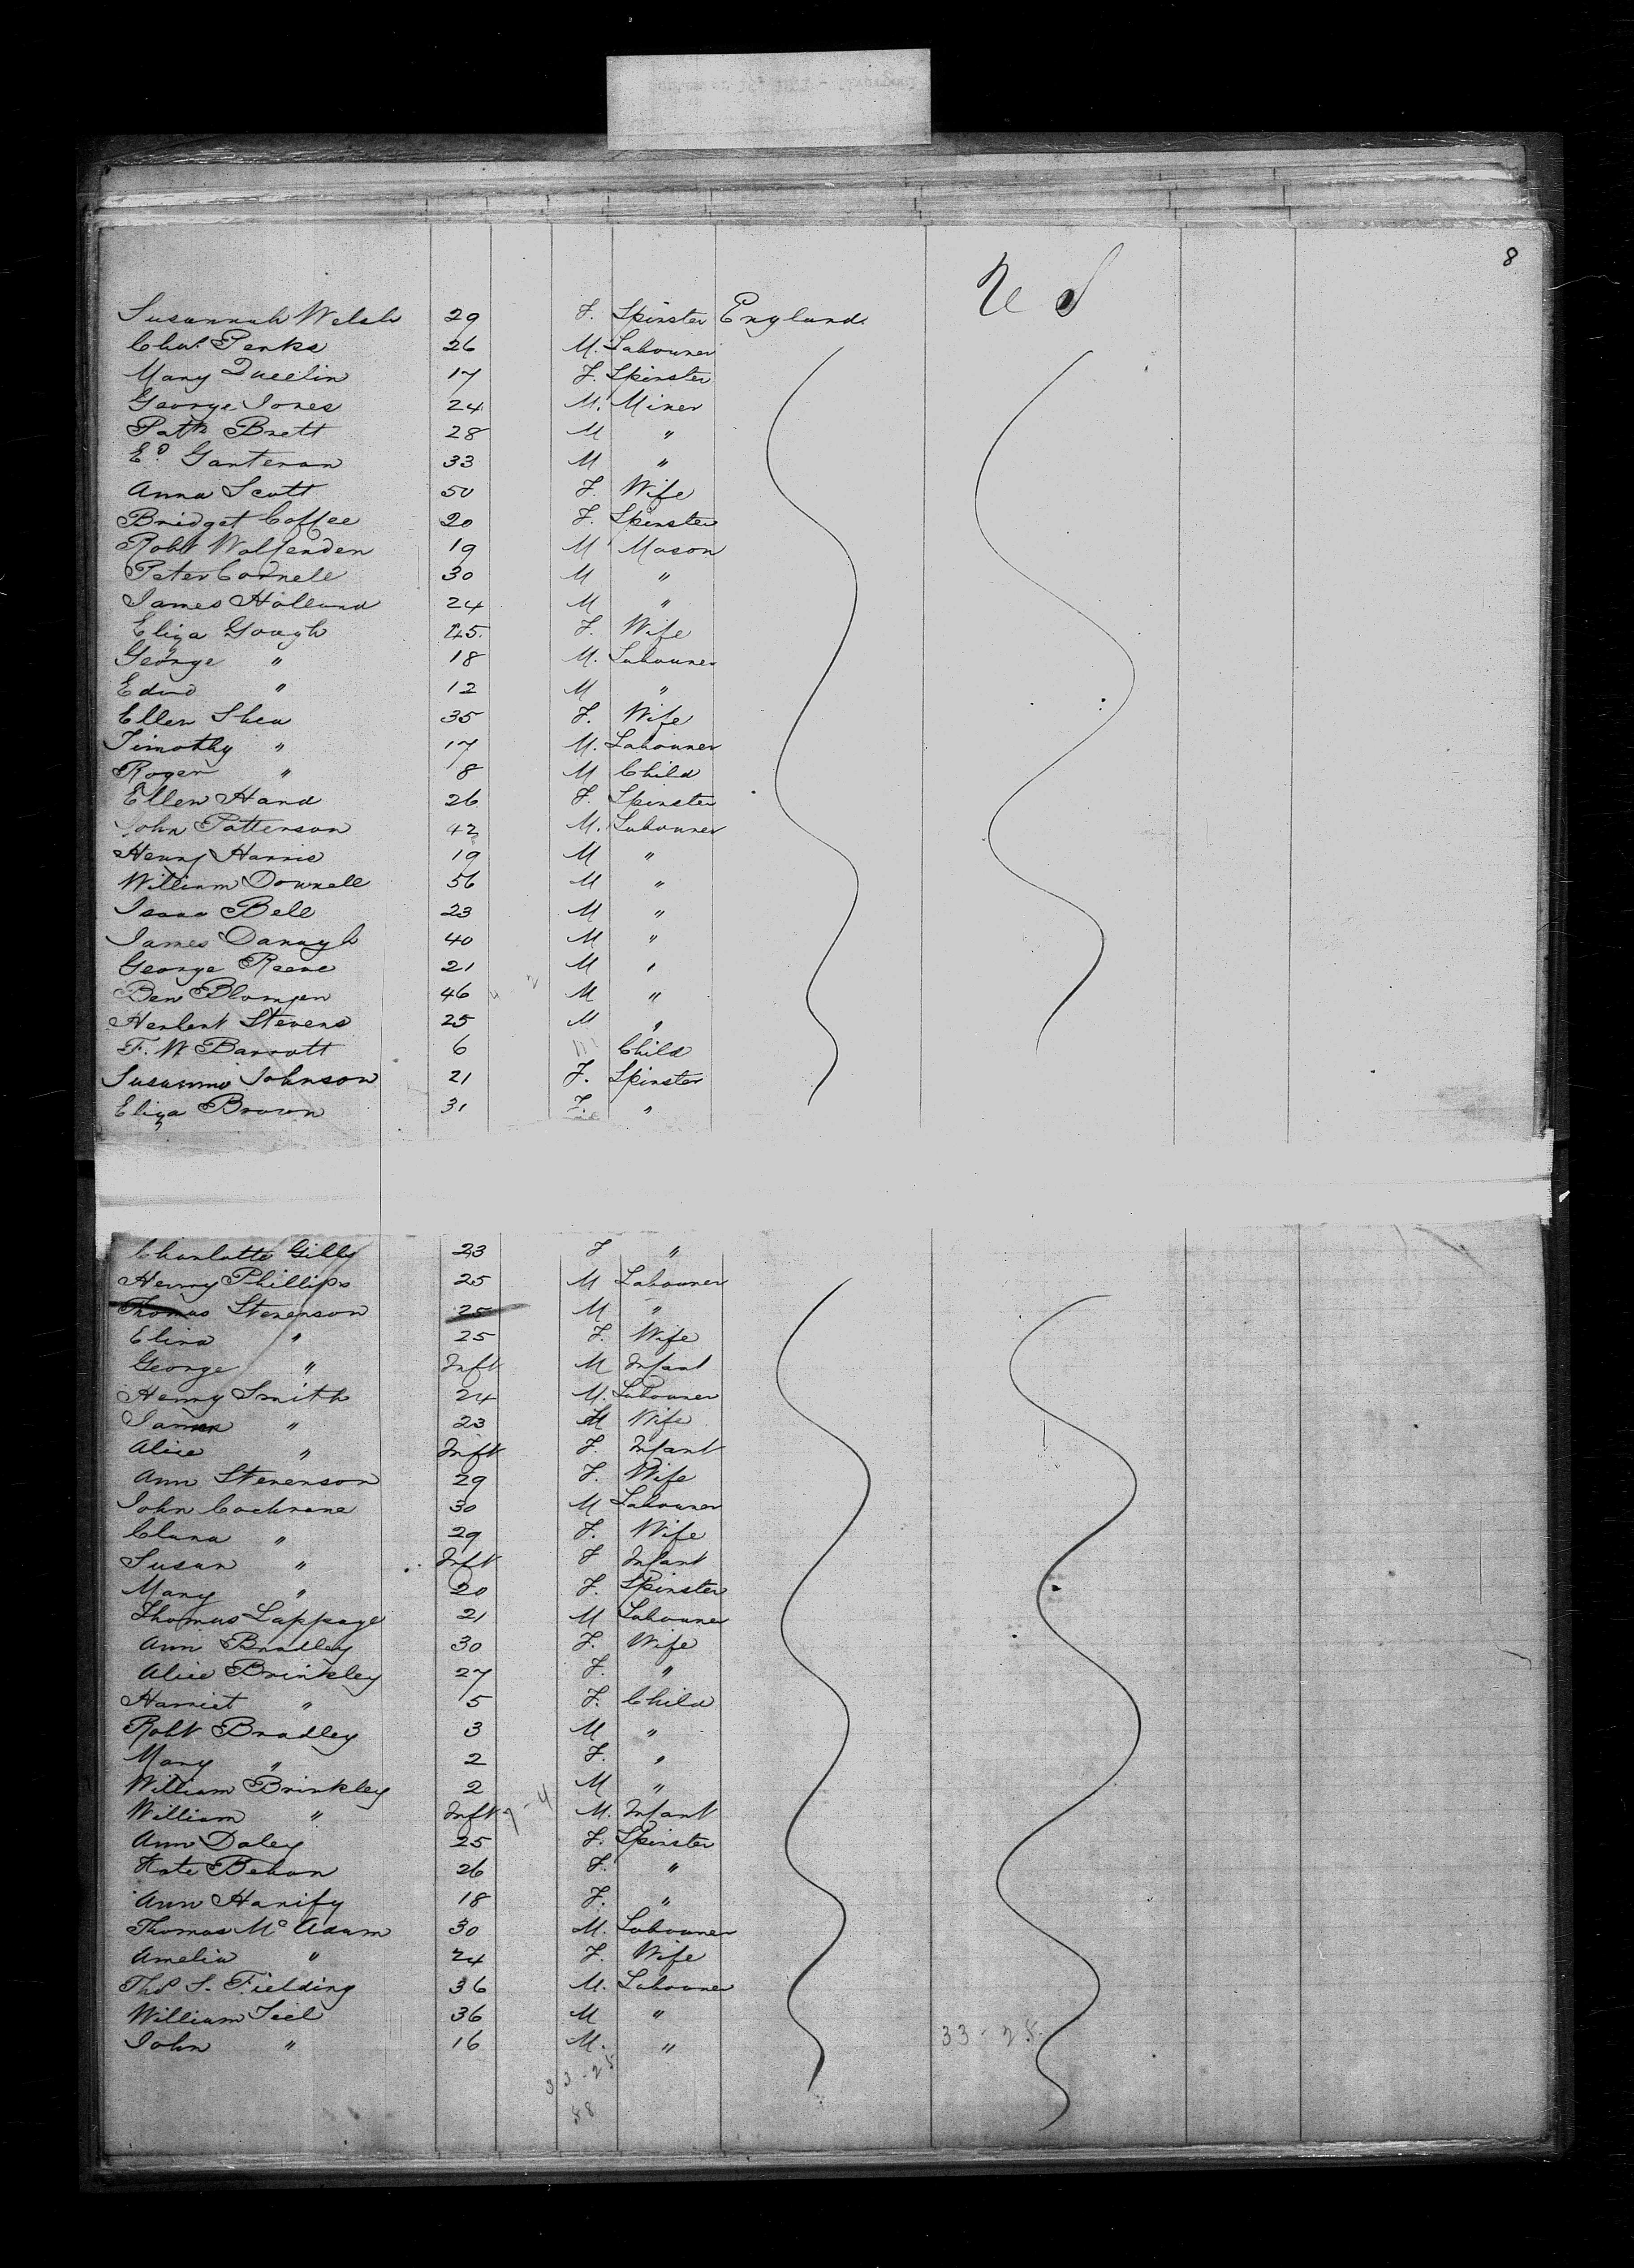 8
U S
Susannah Welsh 29 F. Spinster England
Chas. Perks 26 M. Labourer
Mary Quellin 17 F. Spinster
George Jones 24 M. Miner
Patk Brett 28 M "
Ed. Ganteran 33 M "
Anna Scott 50 F. Wife
Bridget Coffee 20 F. Spinster
Robt Wolfenden 19 M Mason
Peter Connell 30 M "
James Holland 24 M "
Eliza Gough 45 F. Wife
George " 18 M. Labourer
Edwd " 12 M "
Ellen Shea 35 F. Wife
Timothy " 17 M. Labourer
Roger " 8 M Child
Ellen Hand 26 F. Spinster
John Patterson 42 M. Labourer
Henry Harris 19 M "
William Downell 56 M "
Isaac Bell 23 M "
James Danagh 40 M "
George Reeve 21 M "
Ben 46 M "
Herbert Stevens 25 M "
F. W Barratt 6 M Child
Susanna Johnson 21 F. Spinster
Eliza Brown 31 F. "
Charlotte Gilly 23 F "
Henry Phillips 25 M Labourer
Thomas Stevenson 25 M "
Eliza " 25 F. Wife
George " Inft M Infant
Henry Smith 24 M. Labourer
James " 23 M Wife
Alice " Inft F. Infant
Ann Stevenson 29 F. Wife
John Cochrane 30 M Labourer
Clara " 29 F. Wife
Susan " Inft F Infant
Mary " 20 F. Spinster
Thomas Lappage 21 M Labourer
Ann Bradley 30 F. Wife
Alice Brinkley 27 F. "
Harriet " 5 F. Child
Robt Bradley 3 M "
Mary " 2 F. "
William Brinkley 2 M "
William " Inft M. Infant
Ann Daley 25 F. Spinster
Kate Behan 26 F. "
Ann Hanify 18 F. "
Thomas Mc Adam 30 M. Labourer
Amelia " 24 F. Wife
Thos S. Fielding 36 M. Labourer
William Teel 36 M "
John " 16 M. "
33-25
33-25
58